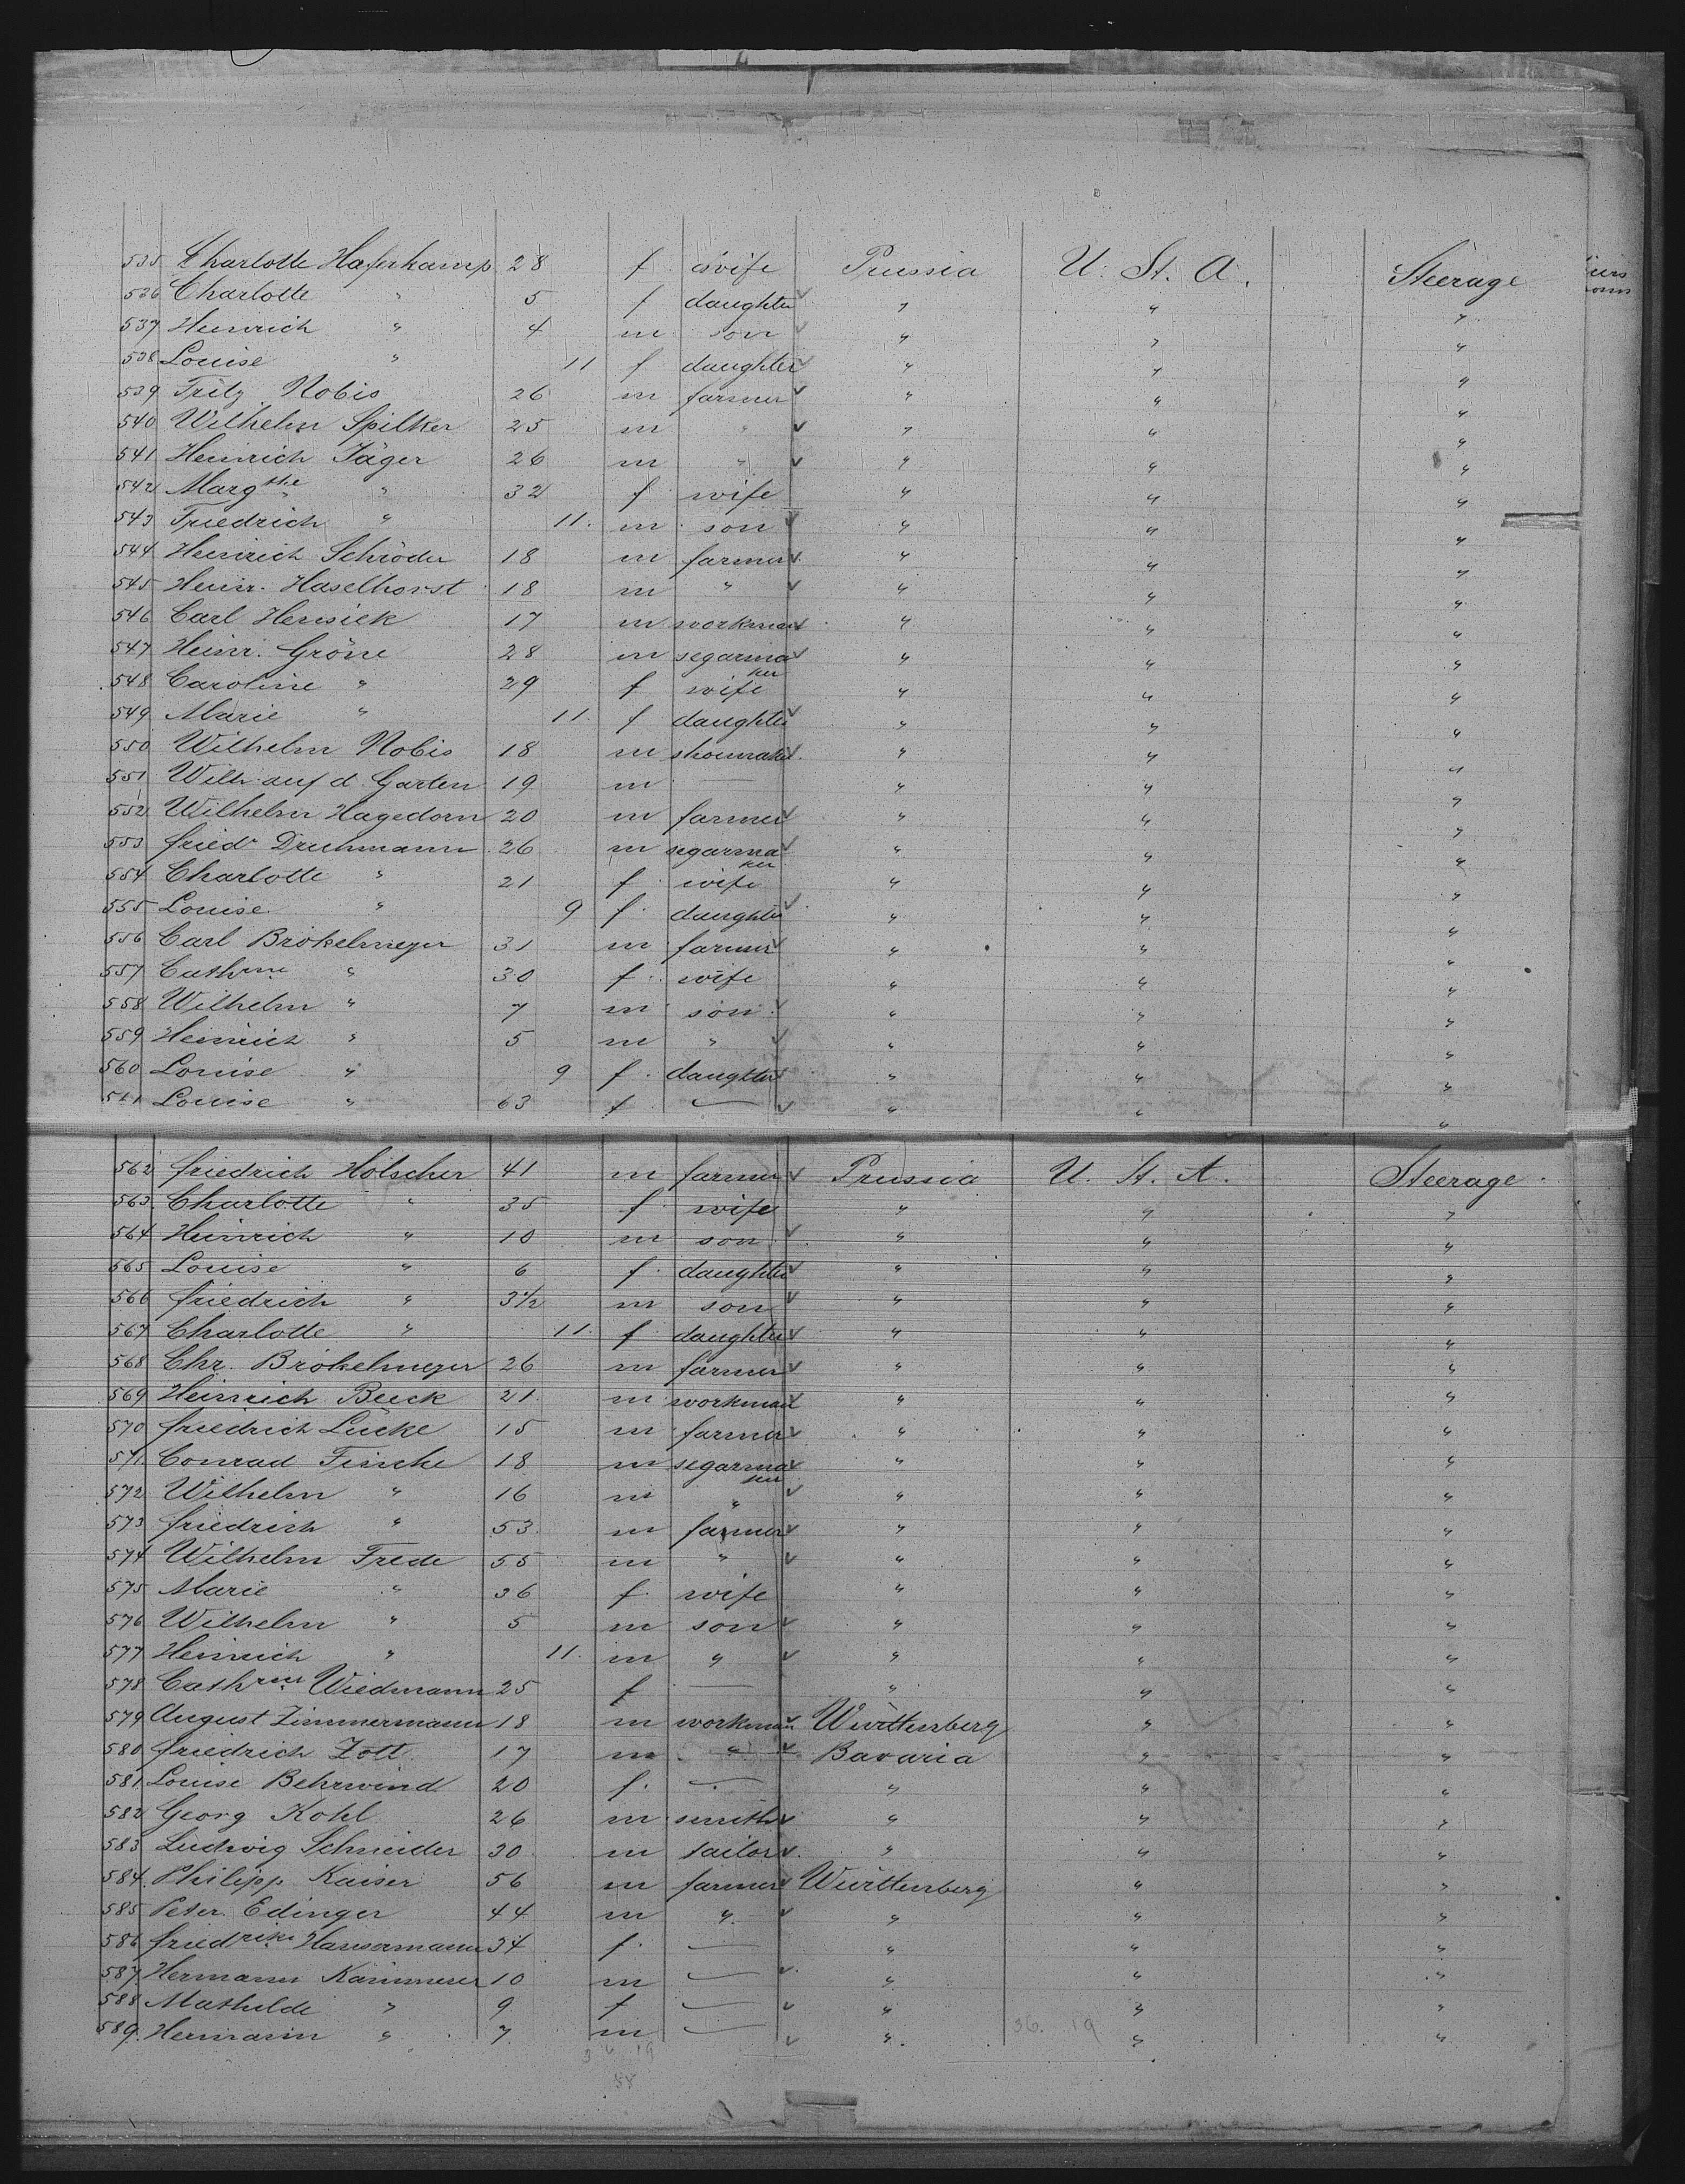 535 Charlotte Haferkamp 28 f wife Prussia U. St. A. Steerage
536 Charlotte " 5 f daughter " " "
537 Heinrich " 4 m son " " "
538 Louise " 11 f daughter " " "
539 Fritz Nobis 26 m farmer " " "
540 Wilhelm Spilker 25 m " " " "
541 Heinrich Jäger 26 m " " " "
542 Margthe " 32 f wife " " "
543 Friedrich " 11. m son " " "
544 Heinrich Schröder 18 m farmer " " "
545 Heinr. Haselhorst 18 m " " " "
546 Carl Hensiek 17 m workman " " "
547 Heinr. Gröne 28 m segarmaker " " "
548 Caroline " 29 f wife " " "
549 Marie " 11. f daughter " " "
550 Wilhelm Nobis 18 m shoemaker " " "
551 Wilh. auf d. Garten 19 m — " " "
552 Wilhelm Hagedorn 20 m farmer " " "
553 Friedr Druhmann 26 m segarmaker " " "
554 Charlotte " 21 f wife " " "
555 Louise " 9 f daughter " " "
556 Carl Brökelmeyer 31 m farmer " " "
557 Cathrine " 30 f wife " " "
558 Wilhelm " 7 m son " " "
559 Heinrich " 5 m " " " "
560 Louise " 9 f daughter " " "
561 Louise " 63 f — " " "
562 Friedrich Hölscher 41 m farmer Prussia U. St. A. Steerage
563 Charlotte " 35 f wife " " "
564 Heinrich " 10 m son " " "
565 Louise " 6 f daughter " " "
566 Friedrich " 3 1/2 m son " " "
567 Charlotte " 11. f daughter " " "
568 Chr. Brökelmeyer 26 m farmer " " "
569 Heinrich Beeck 21 m workman " " "
570 Friedrich Lücke 15 m farmer " " "
571 Conrad Fincke 18 m segarmaker " " "
572 Wilhelm " 16 m " " " "
573 Friedrich " 53 m farmer " " "
574 Wilhelm Frede 55 m " " " "
575 Marie " 36 f wife " " "
576 Wilhelm " 5 m son " " "
577 Heinrich " 11. m " " " "
578 Cathrine Wiedmann 25 f — " " "
579 August Zimmermann 18 m workman Württenberg " "
580 Friedrich Zott 17 m " Bavaria " "
581 Louise Behrwind 20 f. — " " "
582 Georg Kohl 26 m smith " " "
583 Ludwig Schneider 30 m tailor " " "
584 Philipp Kaiser 56 m farmer Württenberg " "
585 Peter Edinger 44 m " " " "
586 Friedrike Hausermann 34 f. — " " "
587 Hermann Kämmerer 10 m — " " "
588 Mathilde " 9 f — " " "
589. Hermann " 7 m — " " "
36. 19